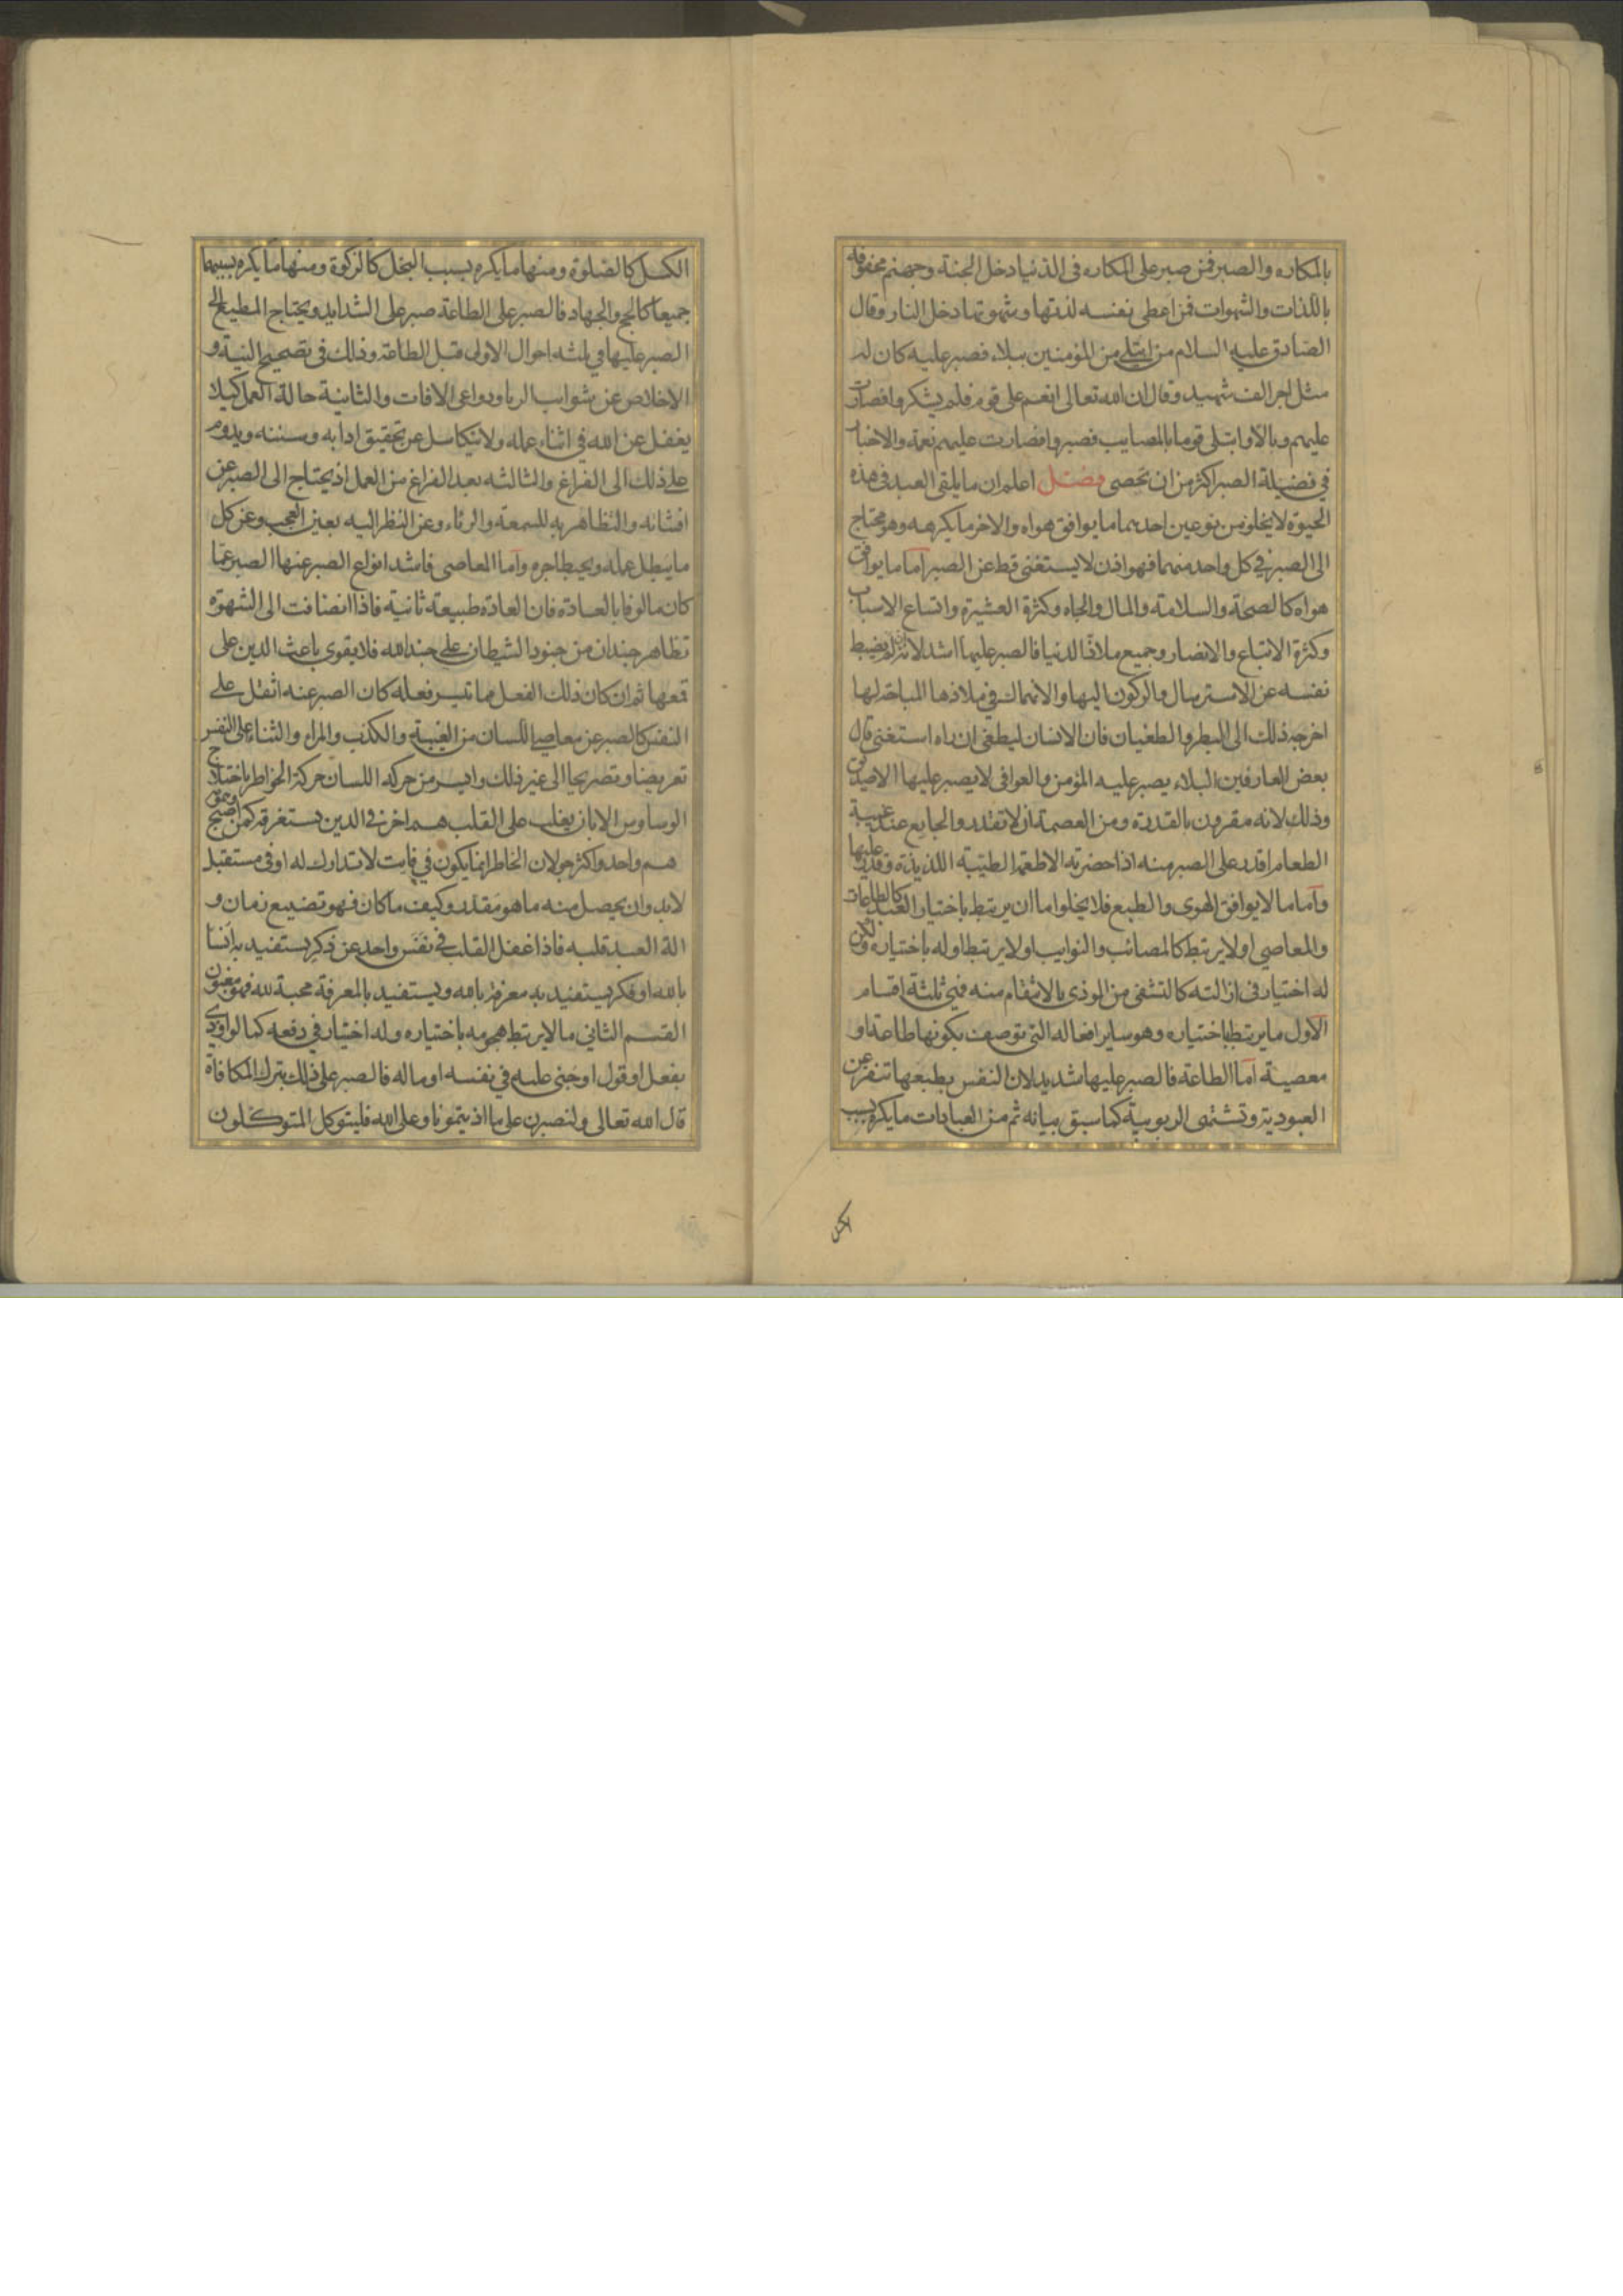 بالمكاره والصبر فمن صبر على المكاره فى الدنيا دخل الجنة وجهنم محفوفة
باللذات والشهوات فمن اعطى نفسه لذتها وشهوتها دخل النار وقال
الصادق عليه السلام من ابتلى من المؤمنين ببلاء فصبر عليه كان له
مثل اجر الف شهيد وقال ان الله تعالى انعم على قوم فلم يشكروا فصارت
عليهم وبالا وابتلى قوما بالمصايب فصبروا فصارت عليهم نعمة والاخبار
في فضيلة الصبر اكثر من ان تحصى فصل اعلم ان ما يلقى العبد فى هذه
الحيوة لا يخلو من نوعين احدهما ما يوافق هواه والاخر ما يكرهه وهو محتاج
الى الصبر في كل واحد منهما فهو اذن لا يستغنى قط عن الصبر اما ما يوافق
هواه كالصحة والسلامة والمال والجاه وكثرة العشيرة واتساع الاسباب
وكثرة الاتباع والانصار وجميع ملاذ الدنيا فالصبر عليها اشد لانه ان لم يضبط
نفسه عن الاسترسال والركون اليها والانهماك في ملاذها المباحة لها
اخرجه ذلك الى البطر والطغيان فان الانسان ليطغى ان راه استغنى قال
بعض العارفين البلاء يصبر عليه المؤمن والعوافى لا يصبر عليها الا صديق
وذلك لانه مقرون بالقدرة ومن العصمة ان لا تقدر والجايع عند غيبة
الطعام اقدر على الصبر منه اذا حضرته الاطعمة الطيبة اللذيذة وقدر عليها
واما ما لا يوافق الهوى والطبع فلا يخلوا اما ان يرتبط باختيار العبد كالطاعات
والمعاصي او لا يرتبط كالمصائب والنوايب او لا يرتبط اوله باختياره ولكن
له اختيار فى ازالته كالتشفى من الموذى بالانتقام منه فهي ثلثة اقسام
الاول ما يرتبط باختياره وهو ساير افعاله التى توصف بكونها طاعة او
معصية اما الطاعة فالصبر عليها شديد لان النفس بطبعها تنفر عن
العبودية وتشتهى الربوبية كما سبق بيانه ثم من العبادات ما يكره بسبب
الكسل كالصلوة ومنها ما يكره بسبب البخل كالزكوة ومنها ما يكره بسببهما
جميعا كالحج والجهاد فالصبر على الطاعة صبر على الشدايد ويحتاج المطيع الى
الصبر عليها في ثلثه احوال الاولى قبل الطاعة وذلك فى تصحيح النية و
الاخلاص عن شوايب الريا ودواعى الافات والثانية حالة العمل كيلا
يغفل عن الله في اثناء عمله ولا يتكاسل عن تحقيق ادابه وسننه ويدوم
على ذلك الى الفراغ والثالثه بعد الفراغ من العمل اذ يحتاج الى الصبر عن
افشائه والتظاهر به للسمعة والرئاء وعن النظر اليه بعين العجب وعن كل
ما يبطل عمله ويحبط اجره واما المعاصى فاشد انواع الصبر عنها الصبر عما
كان مالوفا بالعادة فان العادة طبيعة ثانية فاذا انضافت الى الشهوة
تظاهر جندان من جنود الشيطان على جند الله فلا يقوى باعث الدين على
قمعها ثم ان كان ذلك الفعل مما تيسر فعله كان الصبر عنه اثقل على
النفس كالصبر عن معاصى اللسان من الغيبة والكذب والمراء والثناء على النفس
تعريضا وتصريحا الى غير ذلك وايسر من حركة اللسان حركة الخواطر باختلاج
الوساوس الا بان يغلب على القلب هم اخر فى الدين يستغرقه كمن اصبح وهمه
هم واحد واكثر جولان الخاطر انما يكون في فايت لا تدارك له او فى مستقبل
لابد وان يحصل منه ما هو مقدر وكيف ما كان فهو تضييع زمان و
الة العبد قلبه فاذا غفل القلب في نفس واحد عن ذكر يستفيد به انسا
بالله او فكر يستفيد به معرفة بالله ويستفيد بالمعرفة محبة لله فهو مغبون
القسم الثاني ما لا يرتبط هجومه باختياره وله اختيار في دفعه كما لو اوذى
بفعل او قول او جنى عليه في نفسه او ماله فالصبر على ذلك بترك المكافاة
قال الله تعالى ولنصبرن على ما اذيتمونا وعلى الله فليتوكل المتوكلون